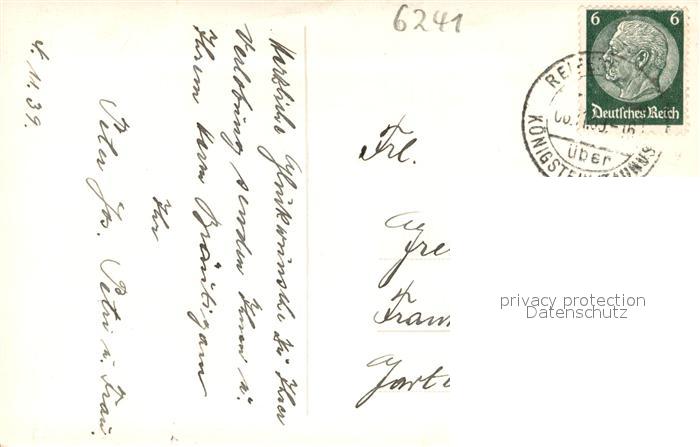 6241
6 6
Deutsches Reich
über
KÖNIGSTEIN (TAUNUS
4. 11. 39.
Herzliche Glückwünsche zu Ihrer
Verlobung senden Ihnen u.
Ihrem Herrn Bräutigam
Ihr
Peter Jos. Petri u. Frau.
Frl.
Fran
Gart
privacy protection
Datenschutz